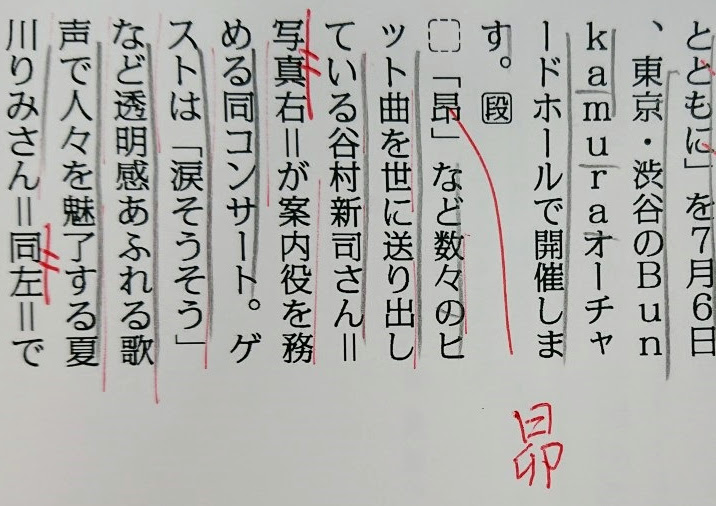 とともに」を7月6日
、東京・渋谷のBun
kamuraオーチャ
ードホールで開催しま
す。段
「昂」など数々のヒ
ット曲を世に送り出し
ている谷村新司さん＝
写真右＝が案内役を務
める同コンサート。ゲ
ストは「涙そうそう」
など透明感あふれる歌
声で人々を魅了する夏
川りみさん＝同左＝で
昴